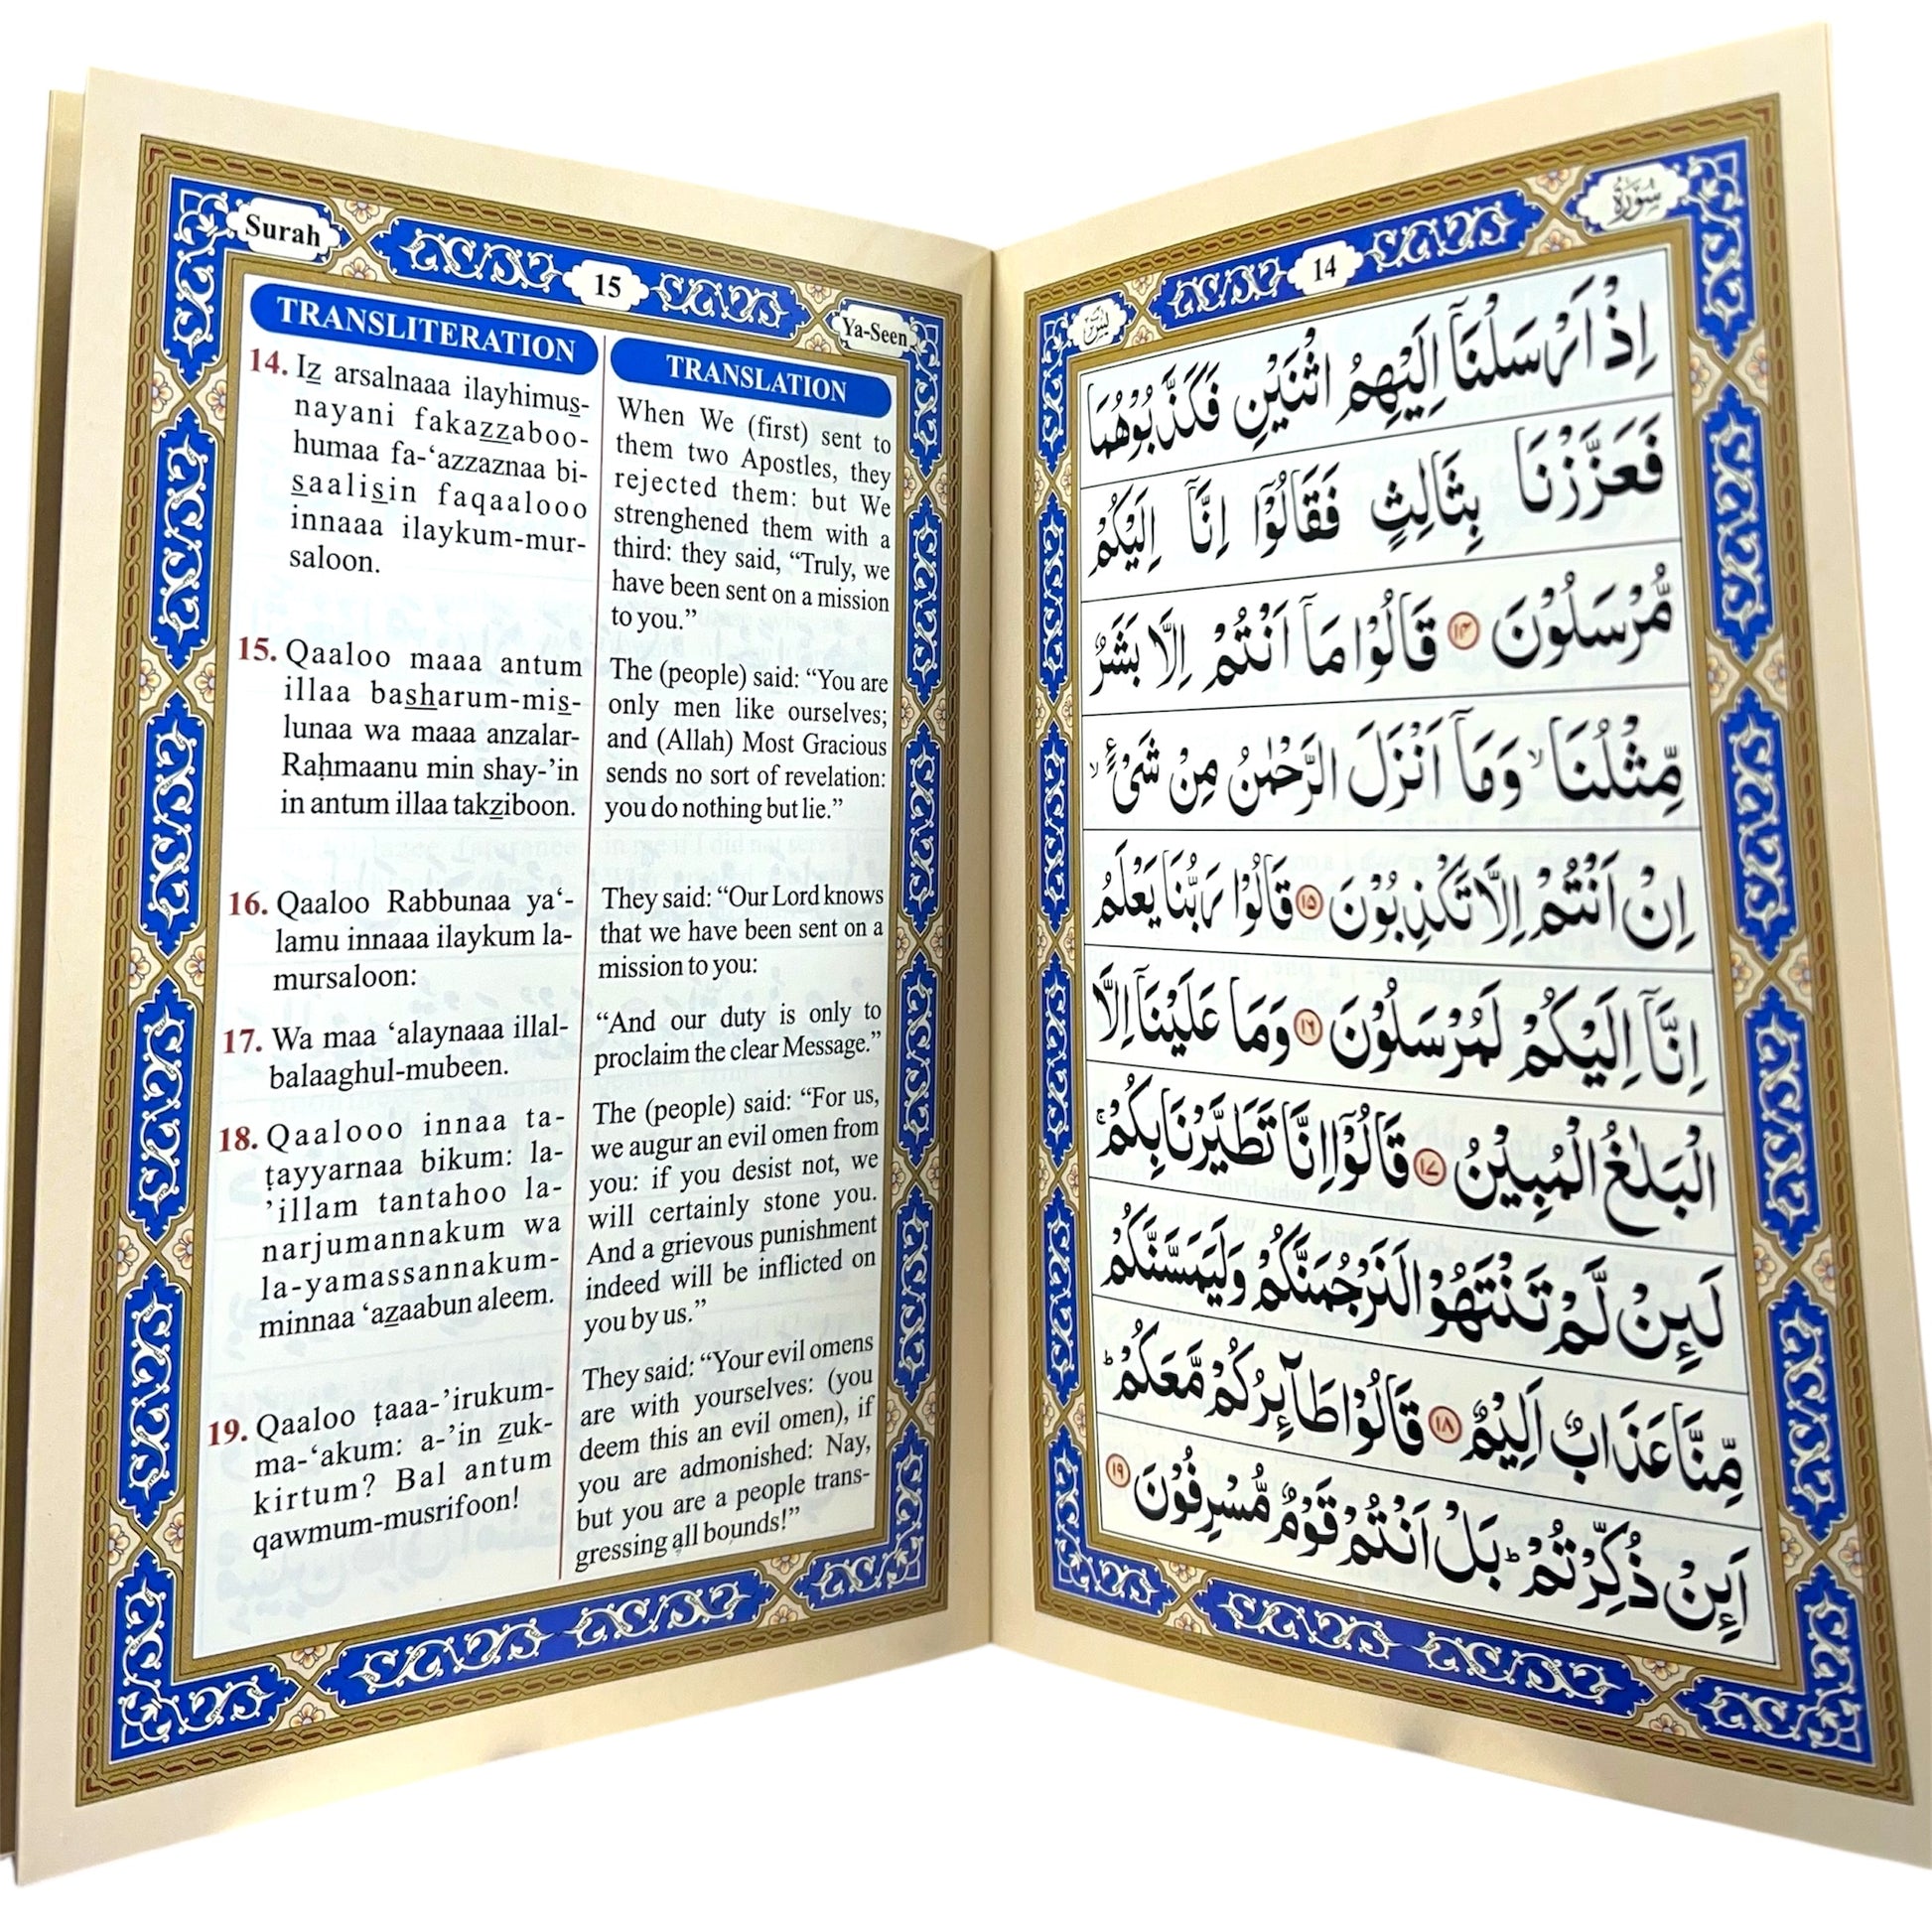 Surah
15
Ya-Seen
TRANSLITERATION
14. Iz arsalnaaa ilayhimus-
nayani fakazzaboo-
humaa fa-‘azzaznaa bi-
saalisin faqaalooo
innaaa ilaykum-mur-
saloon.
15. Qaaloo maaa antum
illaa basharum-mis-
lunaa wa maaa anzalar-
Raḥmaanu min shay-’in
in antum illaa takziboon.
16. Qaaloo Rabbunaa ya‘-
lamu innaaa ilaykum la-
mursaloon:
17. Wa maa ‘alaynaaa illal-
balaaghul-mubeen.
18. Qaalooo innaa ta-
ṭayyarnaa bikum: la-
’illam tantahoo la-
narjumannakum wa
la-yamassannakum-
minnaa ‘azaabun aleem.
19. Qaaloo ṭaaa-’irukum-
ma-‘akum: a-’in zuk-
kirtum? Bal antum
qawmum-musrifoon!
TRANSLATION
When We (first) sent to
them two Apostles, they
rejected them: but We
strenghened them with a
third: they said, “Truly, we
have been sent on a mission
to you.”
The (people) said: “You are
only men like ourselves;
and (Allah) Most Gracious
sends no sort of revelation:
you do nothing but lie.”
They said: “Our Lord knows
that we have been sent on a
mission to you:
“And our duty is only to
proclaim the clear Message.”
The (people) said: “For us,
we augur an evil omen from
you: if you desist not, we
will certainly stone you.
And a grievous punishment
indeed will be inflicted on
you by us.”
They said: “Your evil omens
are with yourselves: (you
deem this an evil omen), if
you are admonished: Nay,
but you are a people trans-
gressing all bounds!”
سُوْرَةُ
14
يٰسٓ
اِذْ اَرْسَلْنَآ اِلَيْهِمُ اثْنَيْنِ فَكَذَّبُوْهُمَا
فَعَزَّزْنَا بِثَالِثٍ فَقَالُوْٓا اِنَّآ اِلَيْكُمْ
مُّرْسَلُوْنَ ۱۴ قَالُوْا مَآ اَنْتُمْ اِلَّا بَشَرٌ
مِّثْلُنَا ۙ وَمَآ اَنْزَلَ الرَّحْمٰنُ مِنْ شَىْءٍ ۙ
اِنْ اَنْتُمْ اِلَّا تَكْذِبُوْنَ ۱۵ قَالُوْا رَبُّنَا يَعْلَمُ
اِنَّآ اِلَيْكُمْ لَمُرْسَلُوْنَ ۱۶ وَمَا عَلَيْنَآ اِلَّا
الْبَلٰغُ الْمُبِيْنُ ۱۷ قَالُوْٓا اِنَّا تَطَيَّرْنَا بِكُمْ ۚ
لَئِنْ لَّمْ تَنْتَهُوْا لَنَرْجُمَنَّكُمْ وَلَيَمَسَّنَّكُمْ
مِّنَّا عَذَابٌ اَلِيْمٌ ۱۸ قَالُوْا طَآئِرُكُمْ مَّعَكُمْ ؕ
اَئِنْ ذُكِّرْتُمْ ؕ بَلْ اَنْتُمْ قَوْمٌ مُّسْرِفُوْنَ ۱۹